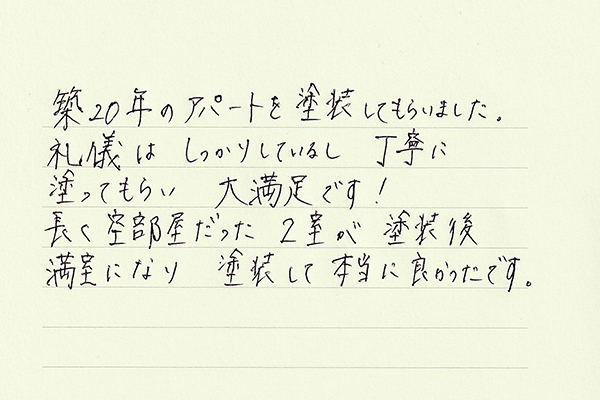 築20年のアパートを塗装してもらいました。
礼儀は しっかりしているし 丁寧に
塗ってもらい 大満足です!
長く空部屋だった 2室が 塗装後
満室になり 塗装して本当に良かったです。